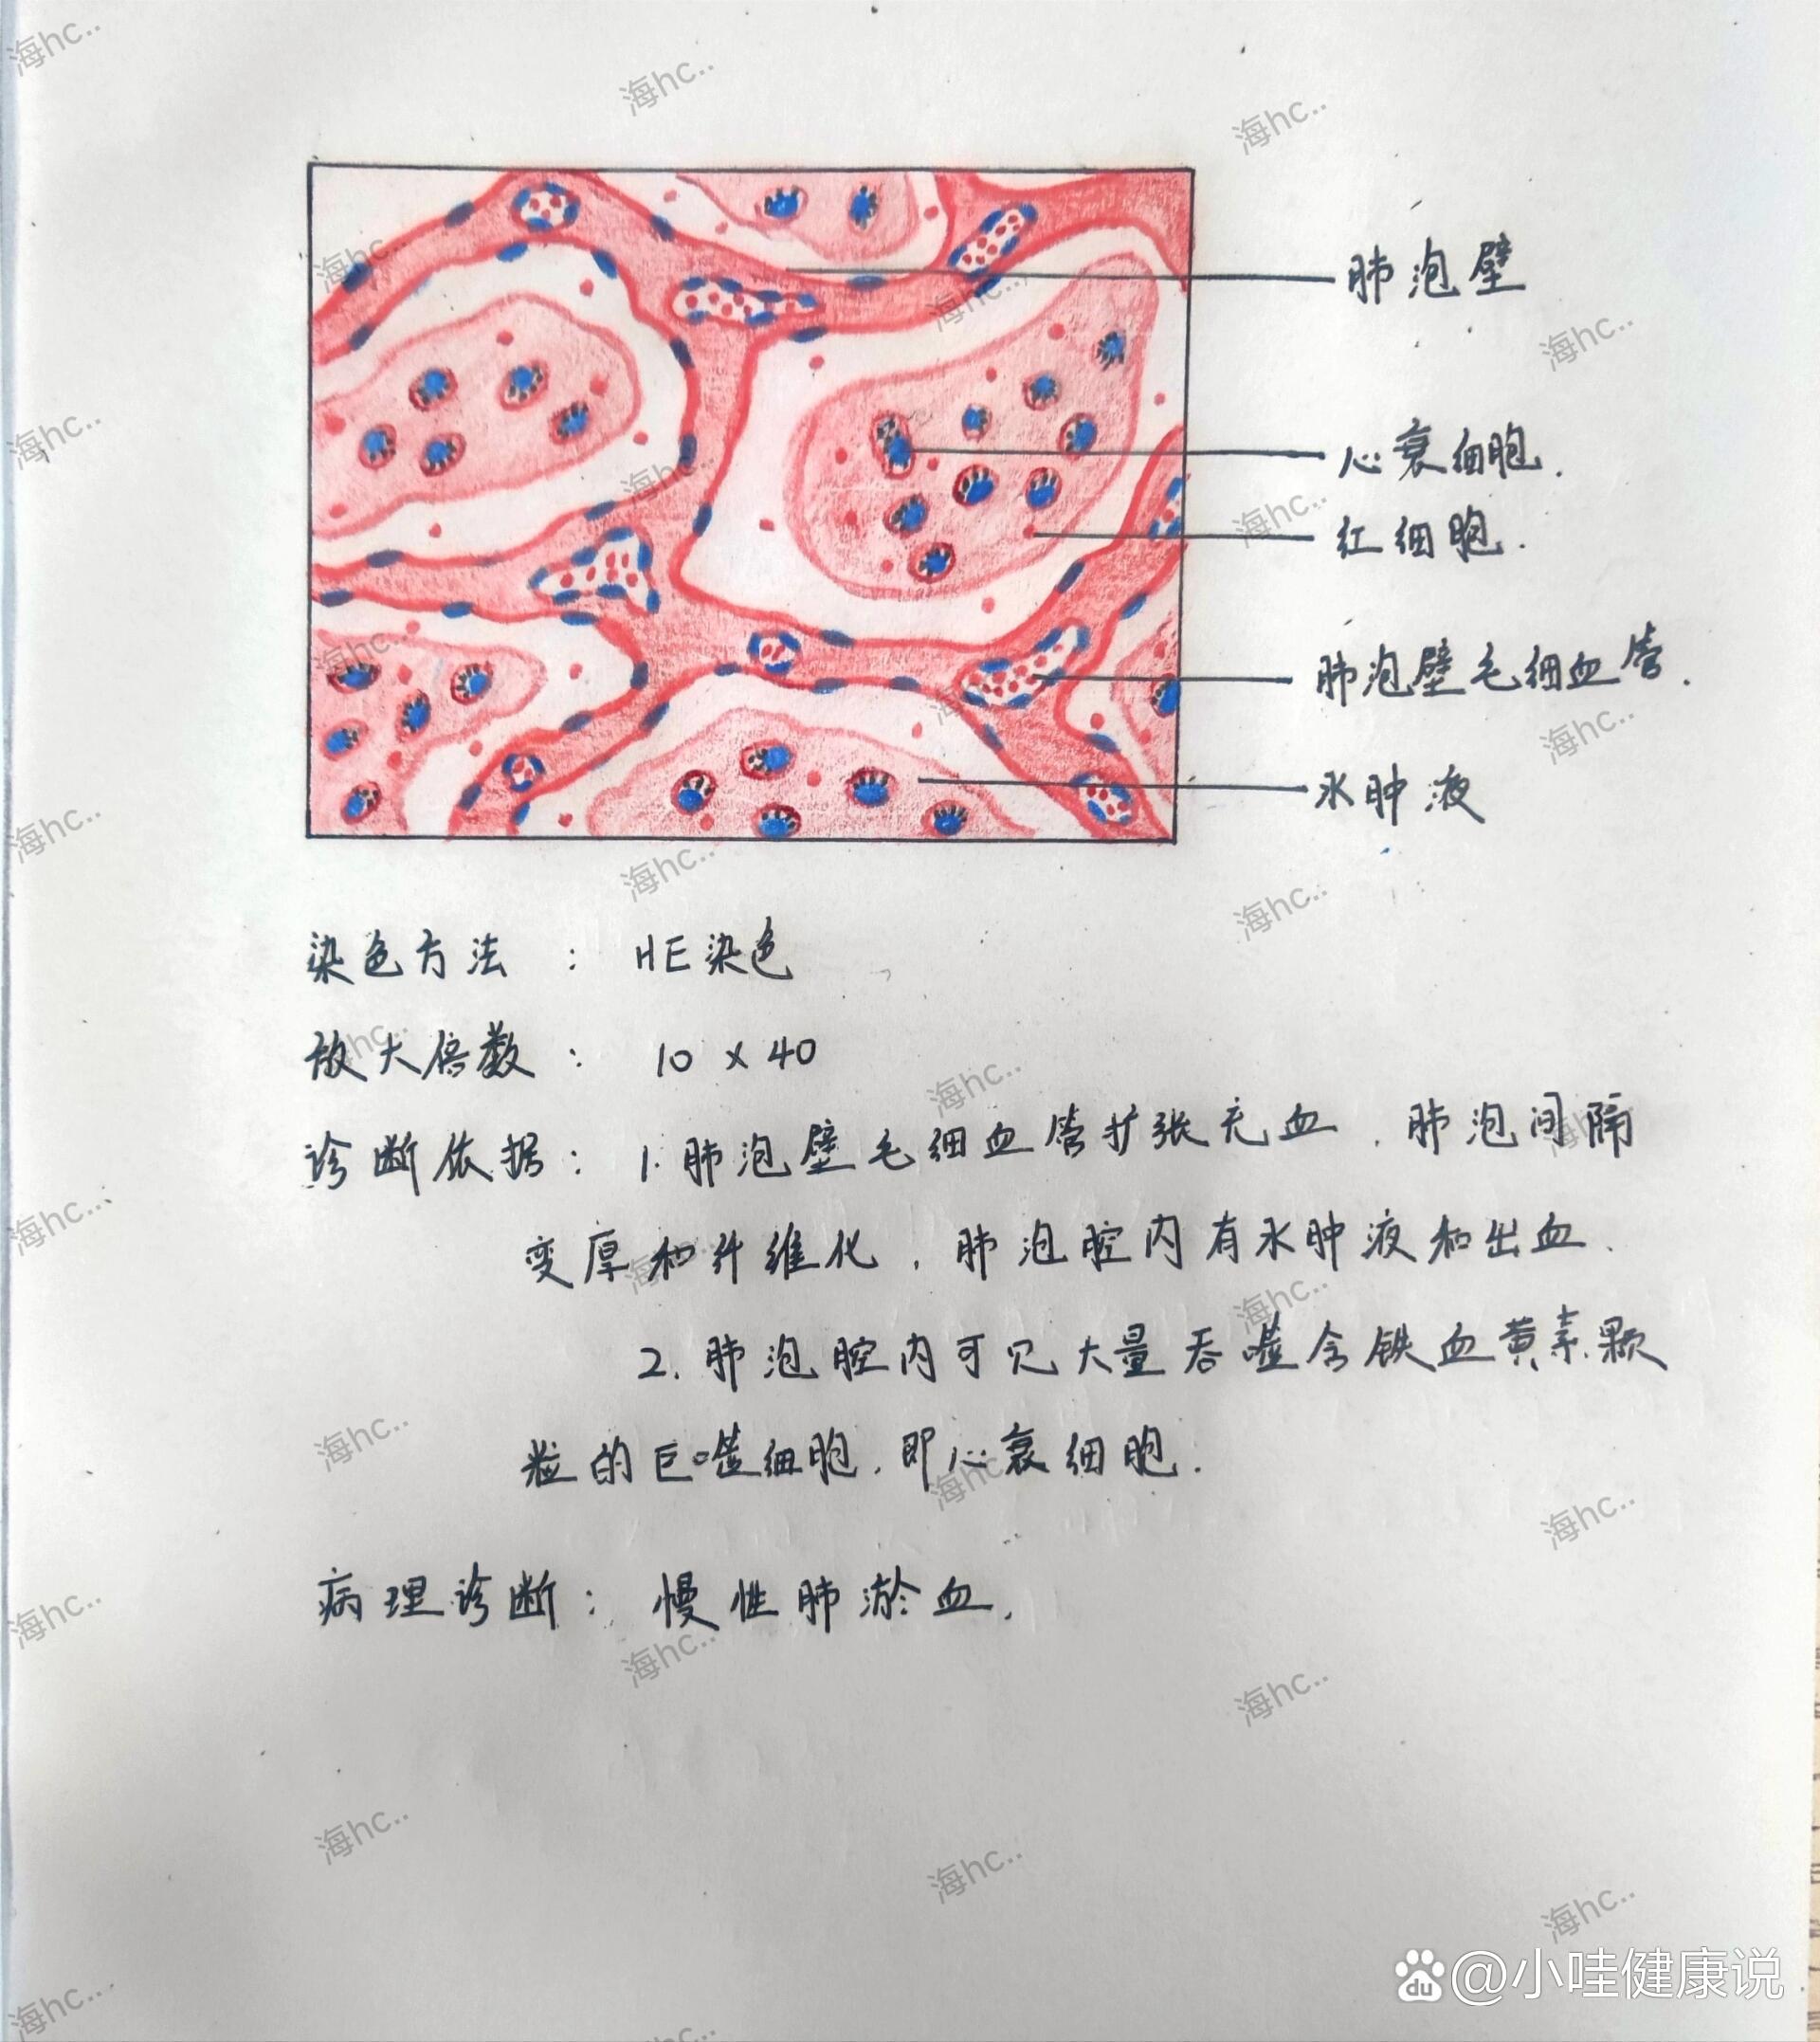 肺泡壁
心衰细胞.
红细胞.
肺泡壁毛细血管.
水肿液
染色方法：HE染色
放大倍数：10 × 40
诊断依据：1.肺泡壁毛细血管扩张充血，肺泡间隔
变厚和纤维化，肺泡腔内有水肿液和出血.
2.肺泡腔内可见大量吞噬含铁血黄素颗
粒的巨噬细胞，即心衰细胞.
病理诊断：慢性肺淤血.
海hc..
du @小哇健康说